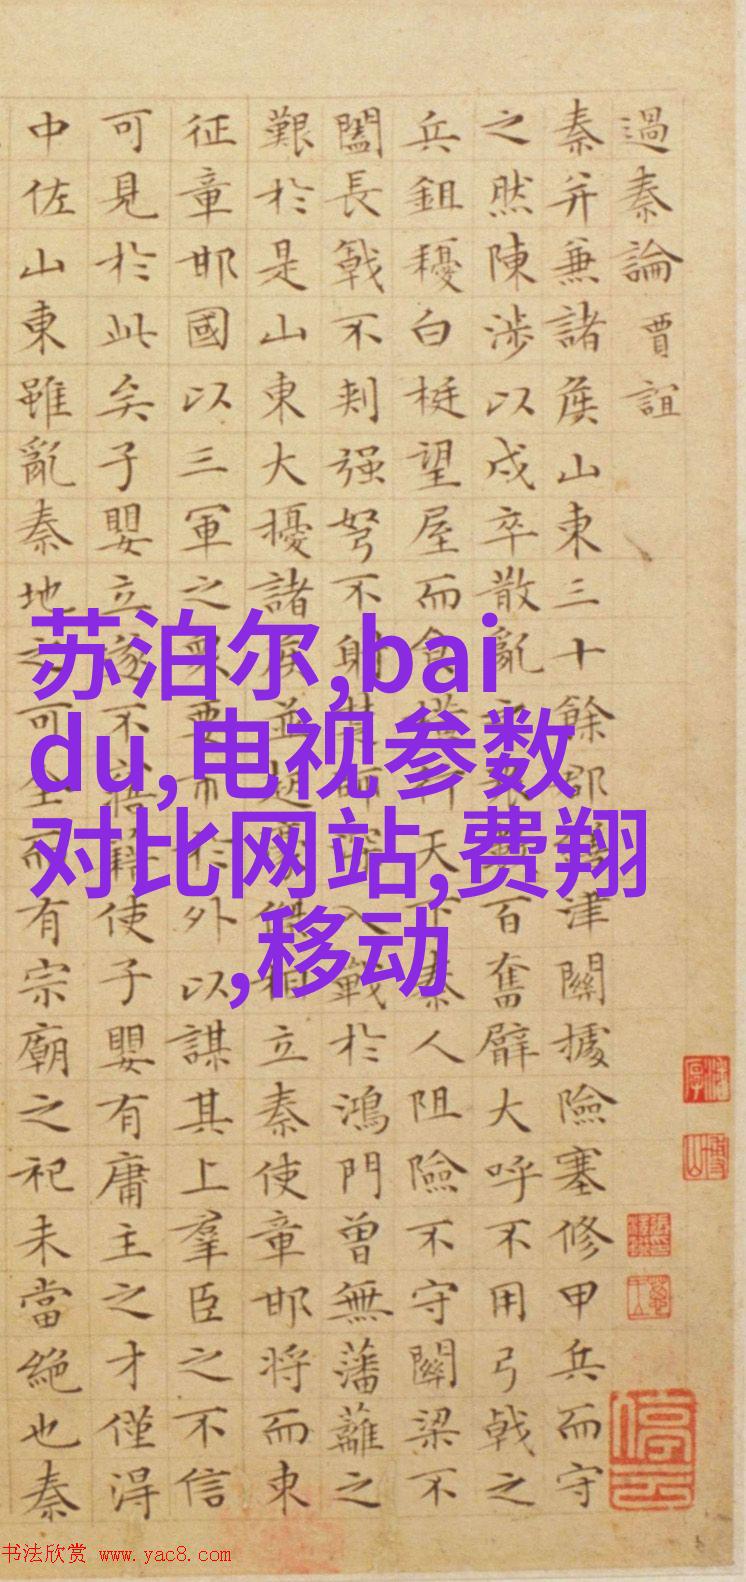 過秦論 賈誼
秦并兼諸侯山東三十餘郡繕津關據險塞修甲兵而守
之然陳涉以戍卒散亂之眾數百奮臂大呼不用弓戟之
兵鉏耰白梃望屋而食橫行天下秦人阻險不守關梁不
闔長戟不刺强弩不射楚師深入戰於鴻門曾無藩籬之
艱於是山東大擾諸侯並起豪傑相立秦使章邯將而東
征章邯國以三軍之眾要市於外以謀其上羣臣之不信
可見於此矣子嬰立遂不寤藉使子嬰有庸主之才僅得
中佐山東雖亂秦地之可全而有宗廟之祀未當絕也秦
苏泊尔,bai
du,电视参数
对比网站,费翔
,移动
停云
书法欣赏 www.yac8.com